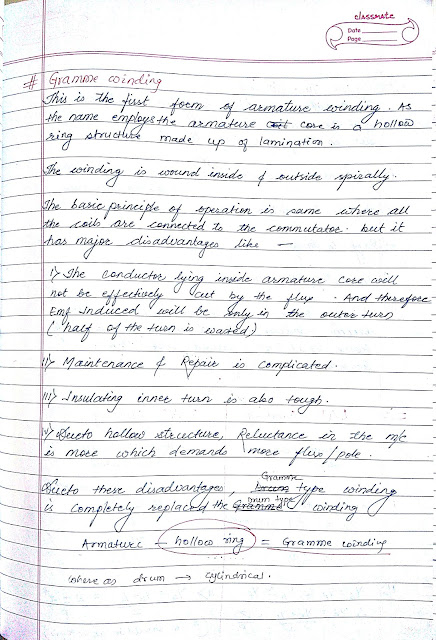 classmate
Date
Page
# Gramme winding
This is the first form of armature winding. As
the name employs the armature core is a hollow
ring structure made up of lamination.
The winding is wound inside & outside spirally.
The basic principle of operation is same where all
the coils are connected to the commutator. but it
has major disadvantages like —
i) The conductor lying inside armature core will
not be effectively cut by the flux. And therefore
Emf Induced will be only in the outer turn
(half of the turn is wasted)
ii) Maintenance & Repair is complicated.
iii) Insulating inner turn is also tough.
iv) Dueto hollow structure, Reluctance in the m/c
is more which demands more flux/pole.
Dueto these disadvantages, Gramme type winding
is completely replaced the drum type winding
Armature – hollow ring = Gramme winding
where as drum → cylindrical.